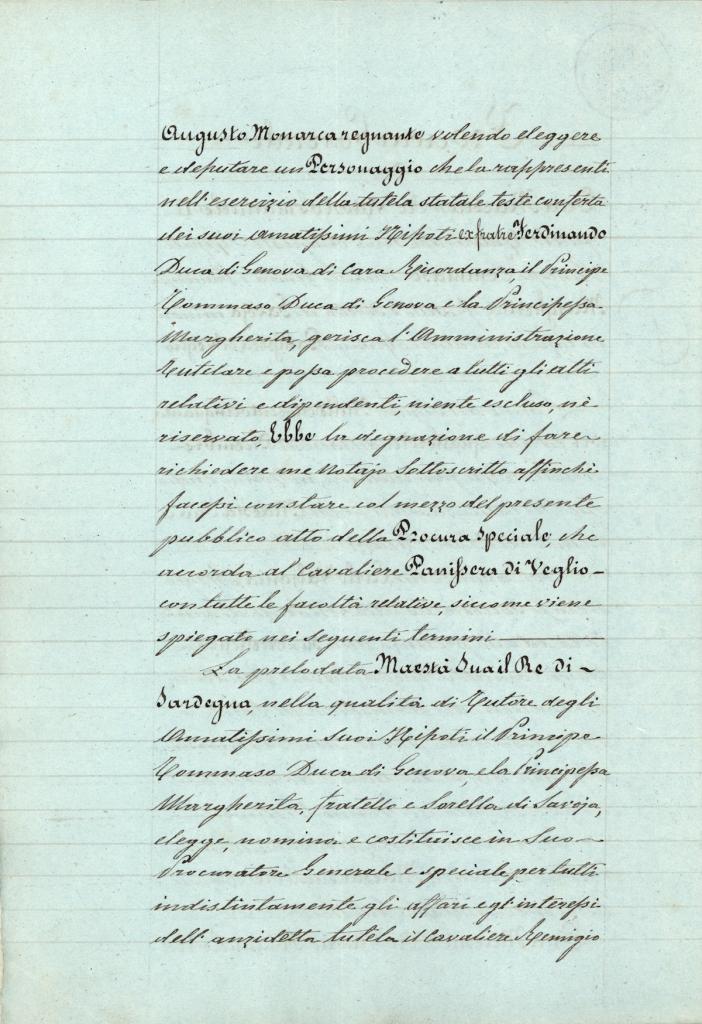 Augusto Monarca regnante volendo eleggere
e deputare un Personaggio che la rappresenti
nell'esercizio della tutela statale testè conferta
dei suoi amatissimi Nipoti ex fratre Ferdinando
Duca di Genova di Cara Ricordanza, il Principe
Tommaso Duca di Genova e la Principessa
Margherita, gerisca l'Amministrazione
Tutelare e possa procedere a tutti gli atti
relativi e dipendenti, niente escluso, nè
riservato, Ebbe la degnazione di fare
richiedere me Notajo Sottoscritto affinchè
facessi constare col mezzo del presente
pubblico atto della Procura Speciale, che
accorda al Cavaliere Panissera di Veglio –
con tutte le facoltà relative, siccome viene
spiegato nei seguenti termini ———
La prelodata Maestà Sua il Re di –
Sardegna, nella qualità di Tutore degli
Amatissimi suoi Nipoti il Principe
Tommaso Duca di Genova, e la Principessa
Margherita, fratello e Sorella di Savoja,
elegge, nomina e costituisce in Suo –
Procuratore Generale e speciale per tutti
indistintamente gli affari e gl'interessi
dell'anzidetta tutela il Cavaliere Remigio